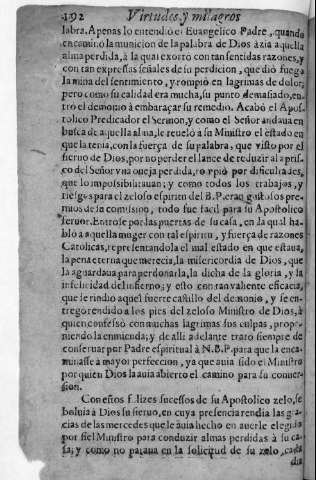 192 Virtudes, y milagros
labra. Apenas lo entendiò el Euangelico Padre, quando
encaminò la municion de la palabra de Dios àzia aquella
alma perdida, à la qual exortò con tan sentidas razones, y
con tan expressas señales de su perdicion, que diò fuego à
la mina del sentimiento, y rompiò en lagrimas de dolor;
pero como su calidad era mucha, su punto demasiado, en-
trò el demonio à embaraçar su remedio. Acabò el Apos-
tolico Predicador el Sermon, y como el Señor andaua en
busca de aquella alma, le reuelò à su Ministro el estado en
que la tenia, con la fuerça de su palabra, que visto por el
sieruo de Dios, por no perder el lance de reduzir al apris-
co del Señor vna oueja perdida, rõpiò por dificultades,
que lo impossibilitauan; y como todos los trabajos, y
riesgos para el zeloso espiritu del B. P. eran gustosos pre-
mios de la comission, todo fue facil para su Apostolico
feruor. Entròse por las puertas de su casa, en la qual ha-
blò à aquella muger con tal espiritu, y fuerça de razones
Catolicas, representandola el mal estado en que estaua,
la pena eterna que merecia, la misericordia de Dios, que
la aguardaua para perdonarla, la dicha de la gloria, y la
infelicidad del infierno; y esto con tan valiente eficacia,
que le rindiò aquel fuerte castillo del demonio, y se en-
tregò rendido à los pies del zeloso Ministro de Dios, à
quien confessò con muchas lagrimas sus culpas, propo-
niendo la enmienda; y de alli adelante tratò siempre de
conseruar por Padre espiritual à N. B. P. para que la enca-
minasse à mayor perfeccion, ya que auia sido el Ministro
por quien Dios la auia abierto el camino para su conuer-
sion.
Con estos felizes sucessos de su Apostolico zelo, se
boluia à Dios su sieruo, en cuya presencia rendia las gra-
cias de las mercedes que le auia hecho en auerle elegido
por fiel Ministro para conduzir almas perdidas à su ca-
sa; y como no paraua en la solicitud de su zelo, cada
dia